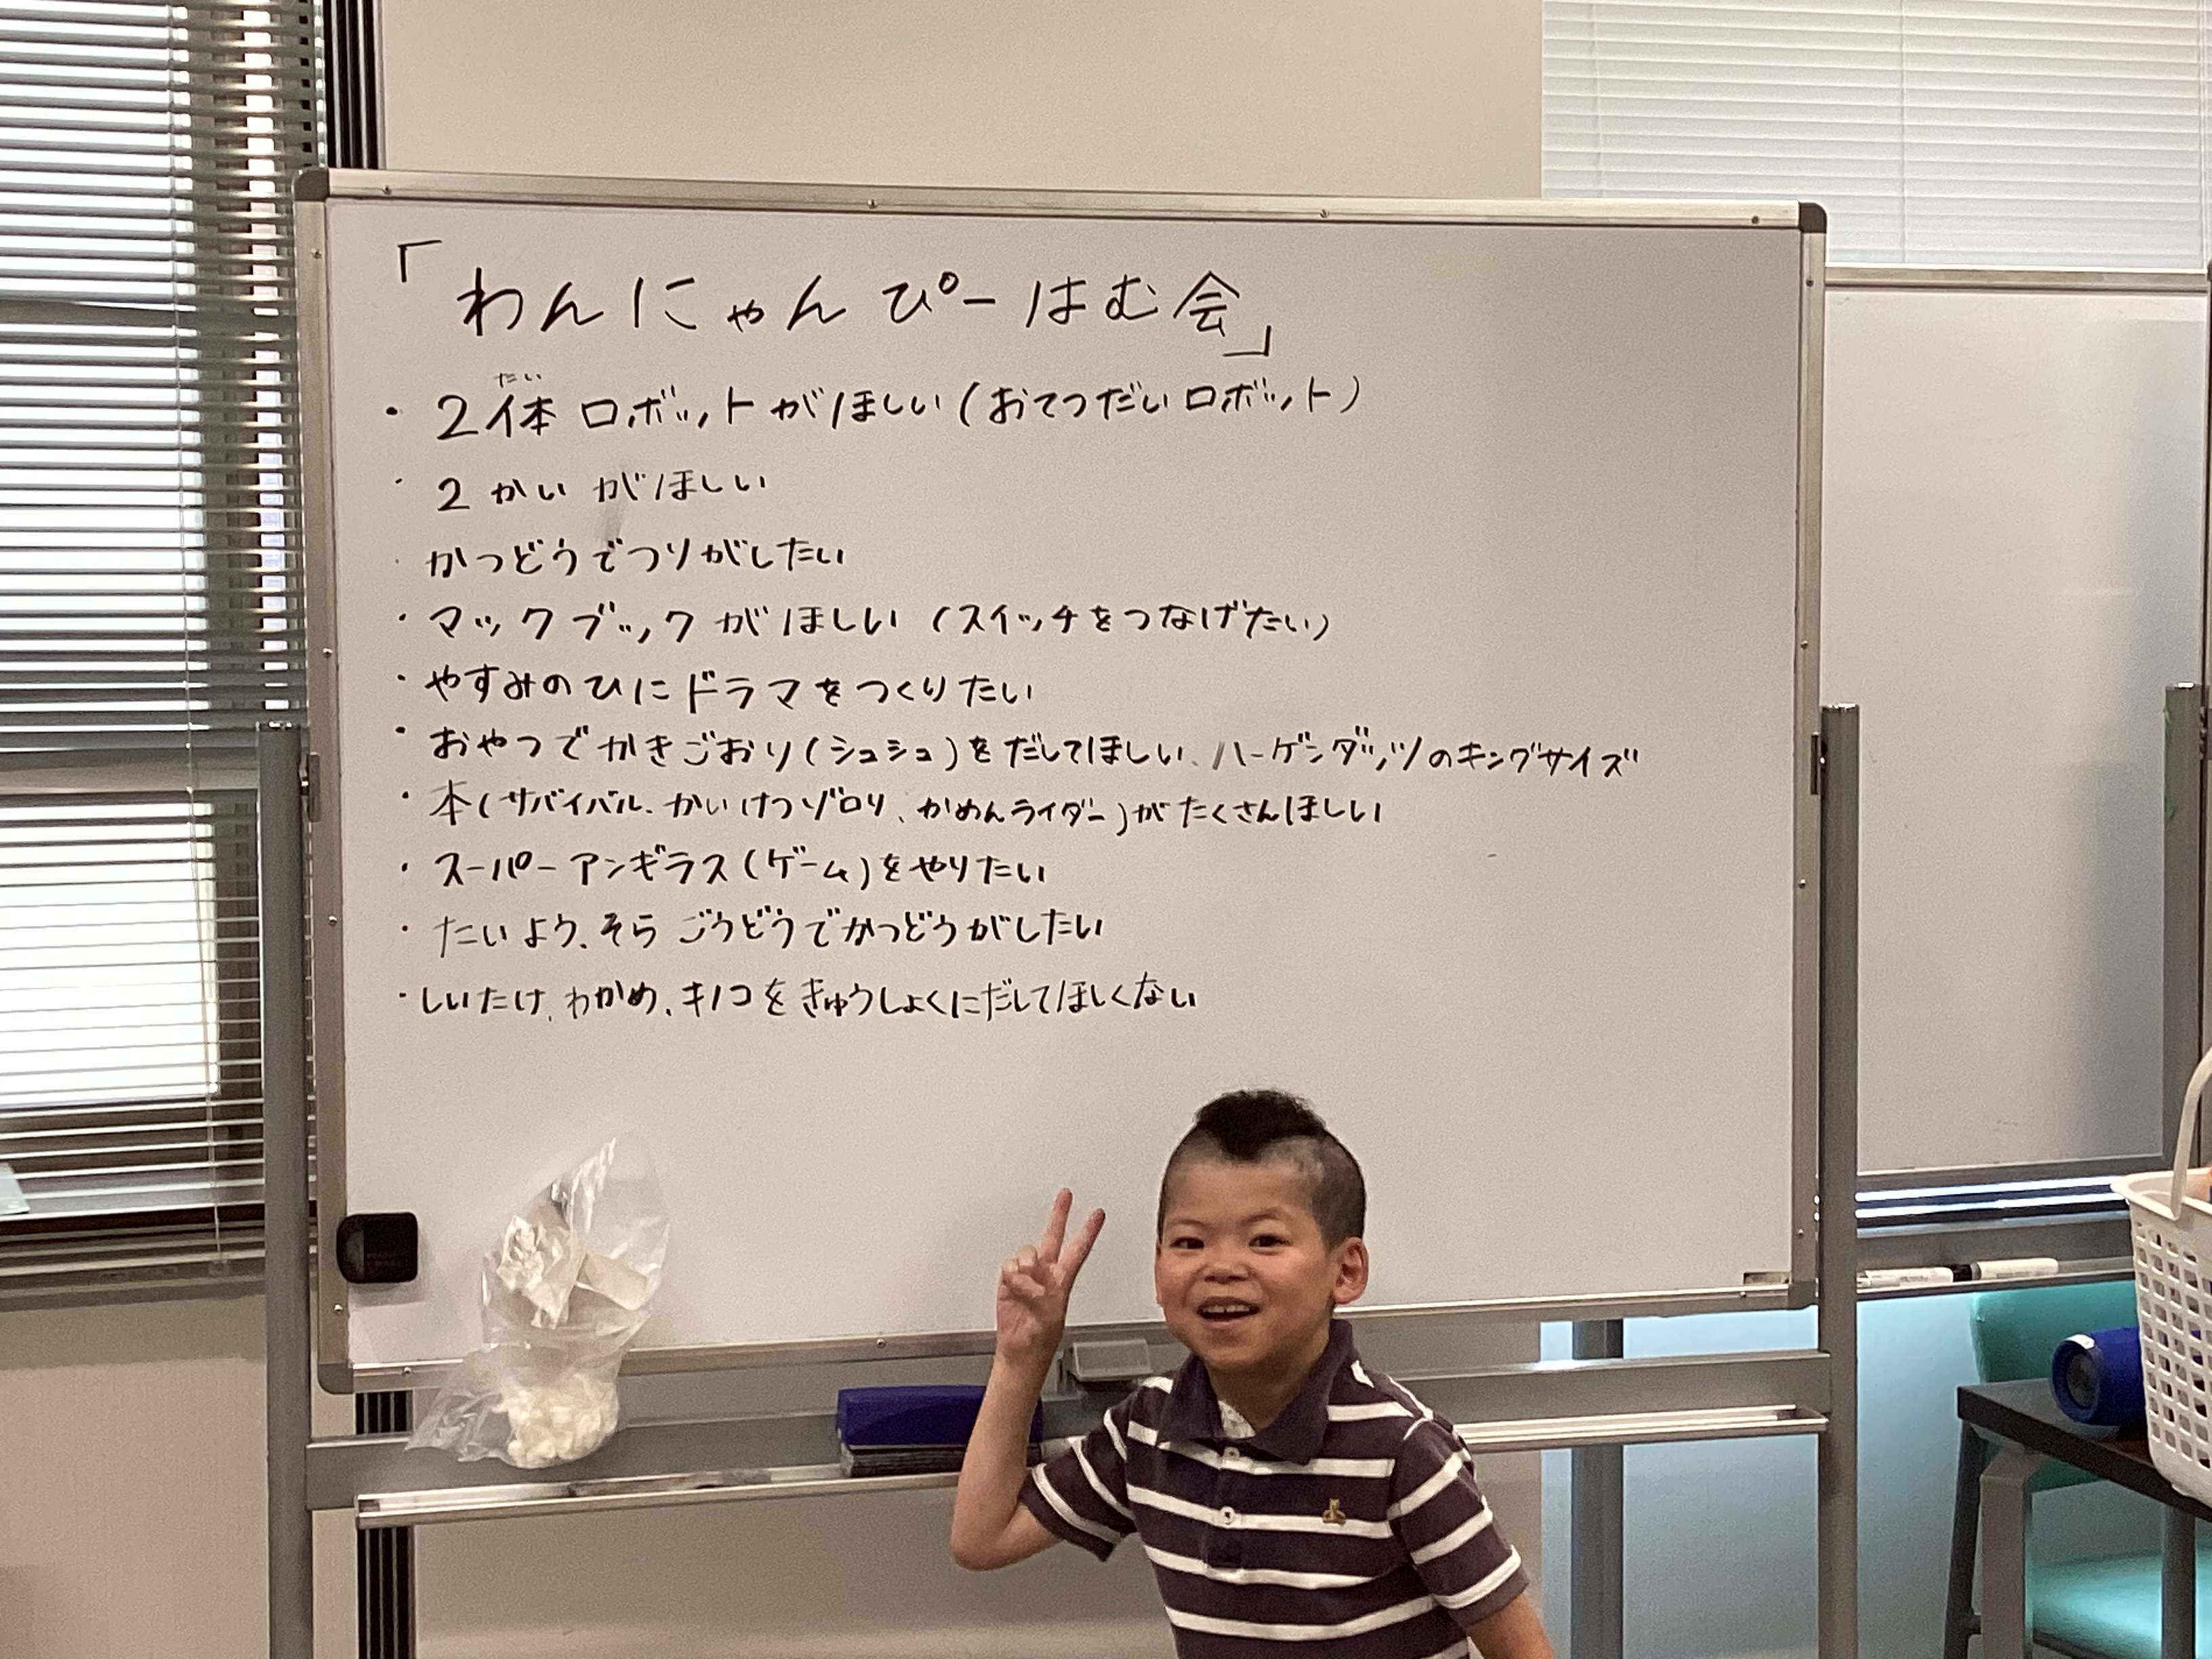 「わんにゃんぴーはむ会」
たい
・2体 ロボットがほしい(おてつだいロボット)
・2かいがほしい
・かつどうでつりがしたい
・マックブックがほしい(スイッチをつなげたい)
・やすみのひにドラマをつくりたい
・おやつでかきごおり(シュシュ)をだしてほしい、ハーゲンダッツのキングサイズ
・本(サバイバル、かいけつゾロリ、かめんライダー)がたくさんほしい
・スーパーアンギラス(ゲーム)をやりたい
・たいよう、そら ごうどうでかつどうがしたい
・しいたけ、わかめ、キノコをきゅうしょくにだしてほしくない